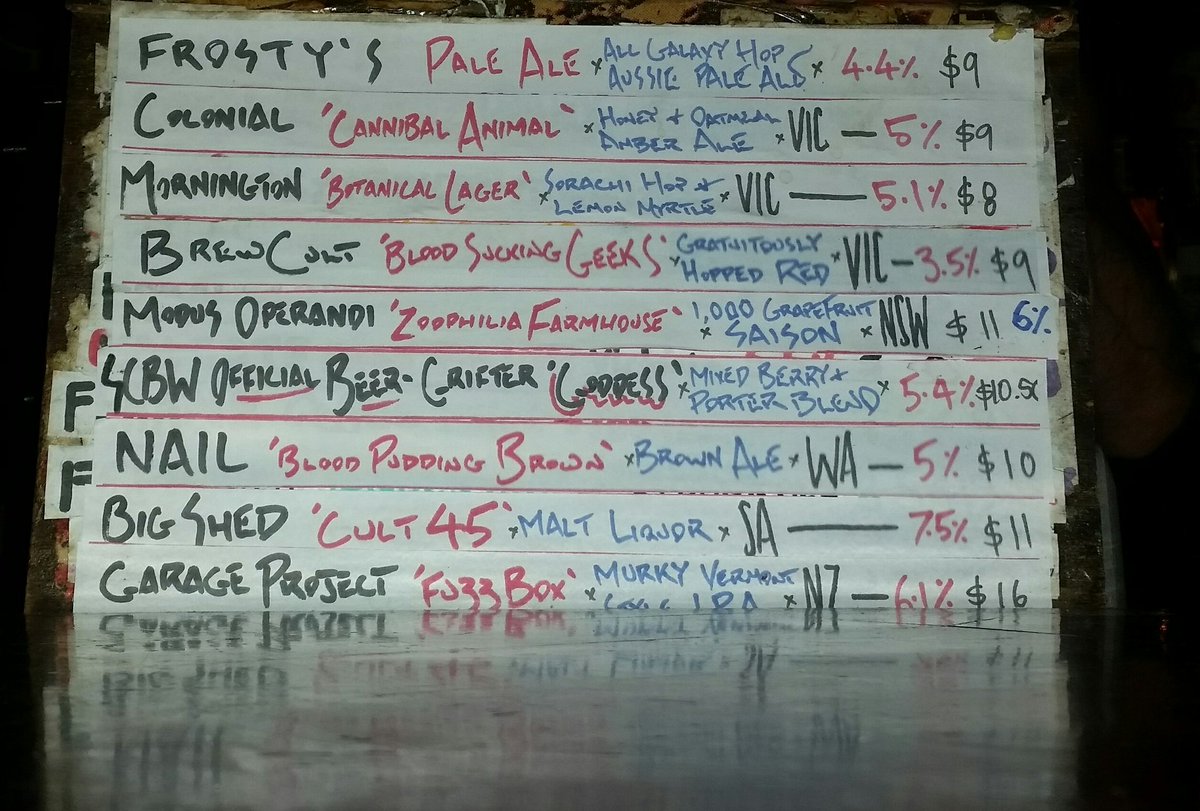 FROSTY'S PALE ALE × ALL GALAXY HOP AUSSIE PALE ALE × 4.4% $9
COLONIAL 'CANNIBAL ANIMAL' × HONEY & OATMEAL AMBER ALE × VIC — 5% $9
MORNINGTON 'BOTANICAL LAGER' × SORACHI HOP & LEMON MYRTLE × VIC — 5.1% $8
BREW CULT 'BLOOD SUCKING GEEKS' × GRATUITOUSLY HOPPED RED × VIC — 3.5% $9
MODUS OPERANDI 'ZOOPHILIA FARMHOUSE' × 1,000 GRAPEFRUIT SAISON × NSW $11 6%
SCBW OFFICIAL BEER - GRIFTER 'GODDESS' × MIXED BERRY & PORTER BLEND × 5.4% $10.5
NAIL 'BLOOD PUDDING BROWN' × BROWN ALE × WA — 5% $10
BIG SHED 'CULT 45' × MALT LIQUOR × SA — 7.5% $11
GARAGE PROJECT 'FUZZ BOX' × MURKY VERMONT IPA × NZ — 6.1% $16